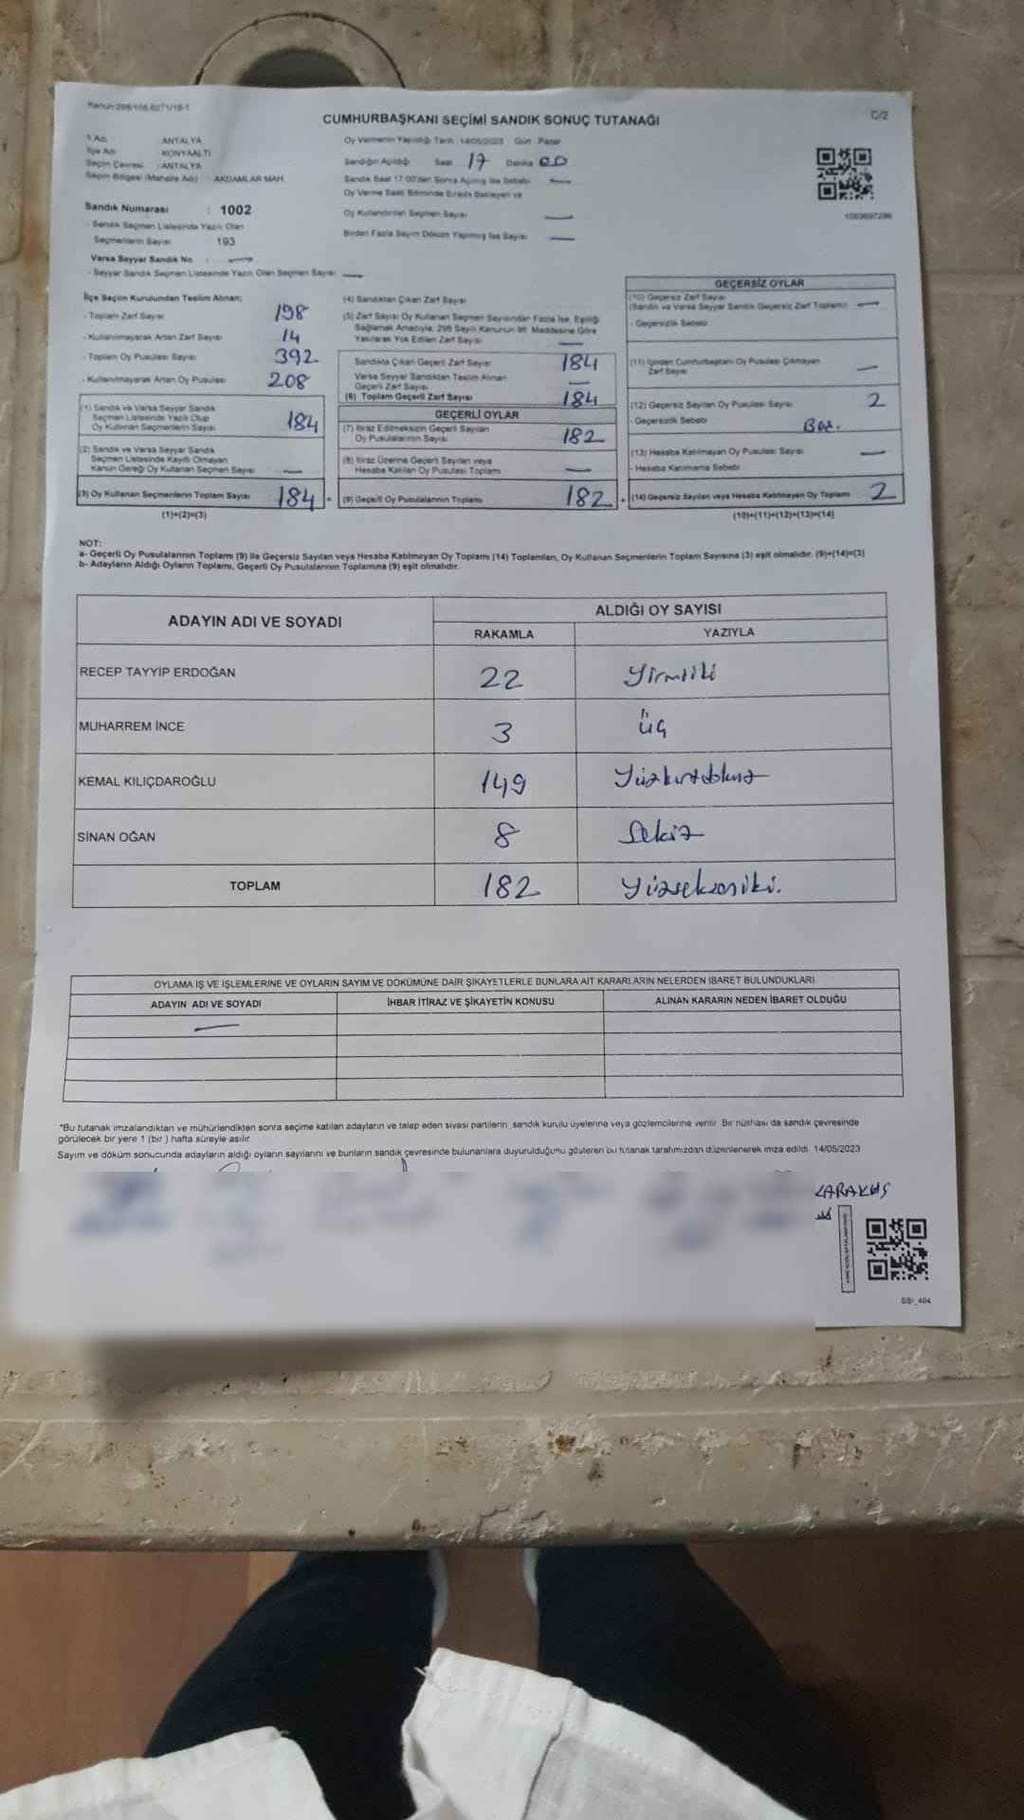 Kanun:298/105,6271/18-1
CUMHURBAŞKANI SEÇİMİ SANDIK SONUÇ TUTANAĞI
C/2
İl Adı : ANTALYA
İlçe Adı : KONYAALTI
Seçim Çevresi : ANTALYA
Seçim Bölgesi (Mahalle Adı) : AKDAMLAR MAH.
Sandık Numarası : 1002
- Sandık Seçmen Listesinde Yazılı Olan
Seçmenlerin Sayısı : 193
Varsa Seyyar Sandık No : —
- Seyyar Sandık Seçmen Listesinde Yazılı Olan Seçmen Sayısı —
Oy Vermenin Yapıldığı Tarih 14/05/2023 Gün Pazar
Sandığın Açıldığı Saat 17 Dakika 00
Sandık Saat 17:00'den Sonra Açılmış İse Sebebi —
Oy Verme Saati Bitiminde Sırada Bekleyen ve
Oy Kullandırılan Seçmen Sayısı —
Birden Fazla Sayım Döküm Yapılmış İse Sayısı —
İlçe Seçim Kurulundan Teslim Alınan;
- Toplam Zarf Sayısı 198
- Kullanılmayarak Artan Zarf Sayısı 14
- Toplam Oy Pusulası Sayısı 392
- Kullanılmayarak Artan Oy Pusulası 208
(1) Sandık ve Varsa Seyyar Sandık
Seçmen Listesinde Yazılı Olup
Oy Kullanan Seçmenlerin Sayısı 184
(2) Sandık ve Varsa Seyyar Sandık
Seçmen Listesinde Kayıtlı Olmayan
Kanun Gereği Oy Kullanan Seçmen Sayısı —
(3) Oy Kullanan Seçmenlerin Toplam Sayısı 184
(1)+(2)=(3)
(4) Sandıktan Çıkan Zarf Sayısı
(5) Zarf Sayısı Oy Kullanan Seçmen Sayısından Fazla İse, Eşitliği
Sağlamak Amacıyla, 298 Sayılı Kanunun 98. Maddesine Göre
Yakılarak Yok Edilen Zarf Sayısı —
Sandıkta Çıkan Geçerli Zarf Sayısı 184
Varsa Seyyar Sandıktan Teslim Alınan
Geçerli Zarf Sayısı —
(6) Toplam Geçerli Zarf Sayısı 184
GEÇERLİ OYLAR
(7) İtiraz Edilmeksizin Geçerli Sayılan
Oy Pusulalarının Sayısı 182
(8) İtiraz Üzerine Geçerli Sayılan veya
Hesaba Katılan Oy Pusulası Toplamı —
(9) Geçerli Oy Pusulalarının Toplamı 182
GEÇERSİZ OYLAR
(10) Geçersiz Zarf Sayısı
(Sandık ve Varsa Seyyar Sandık Geçersiz Zarf Toplamı) —
- Geçersizlik Sebebi
(11) İçinden Cumhurbaşkanı Oy Pusulası Çıkmayan
Zarf Sayısı —
(12) Geçersiz Sayılan Oy Pusulası Sayısı 2
- Geçersizlik Sebebi
(13) Hesaba Katılmayan Oy Pusulası Sayısı —
- Hesaba Katılmama Sebebi
(14) Geçersiz Sayılan veya Hesaba Katılmayan Oy Toplamı 2
(10)+(11)+(12)+(13)=(14)
NOT:
a- Geçerli Oy Pusulalarının Toplamı (9) ile Geçersiz Sayılan veya Hesaba Katılmayan Oy Toplamı (14) Toplamları, Oy Kullanan Seçmenlerin Toplam Sayısına (3) eşit olmalıdır. (9)+(14)=(3)
b- Adayların Aldığı Oyların Toplamı, Geçerli Oy Pusulalarının Toplamına (9) eşit olmalıdır.
ADAYIN ADI VE SOYADI
ALDIĞI OY SAYISI
RAKAMLA YAZIYLA
RECEP TAYYİP ERDOĞAN 22 Yirmiiki
MUHARREM İNCE 3 üç
KEMAL KILIÇDAROĞLU 149 Yüzkırkdokuz
SİNAN OĞAN 8 Sekiz
TOPLAM 182 Yüzsekseniki.
OYLAMA İŞ VE İŞLEMLERİNE VE OYLARIN SAYIM VE DÖKÜMÜNE DAİR ŞİKAYETLERLE BUNLARA AİT KARARLARIN NELERDEN İBARET BULUNDUKLARI
ADAYIN ADI VE SOYADI İHBAR İTİRAZ VE ŞİKAYETİN KONUSU ALINAN KARARIN NEDEN İBARET OLDUĞU
—
*Bu tutanak imzalandıktan ve mühürlendikten sonra seçime katılan adayların ve talep eden siyasi partilerin, sandık kurulu üyelerine veya gözlemcilerine verilir. Bir nüshası da sandık çevresinde
görülecek bir yere 1 (bir ) hafta süreyle asılır.
Sayım ve döküm sonucunda adayların aldığı oyların sayılarını ve bunların sandık çevresinde bulunanlara duyurulduğunu gösteren bu tutanak tarafımızdan düzenlenerek imza edildi. 14/05/2023
KARAKUŞ
SSI_404